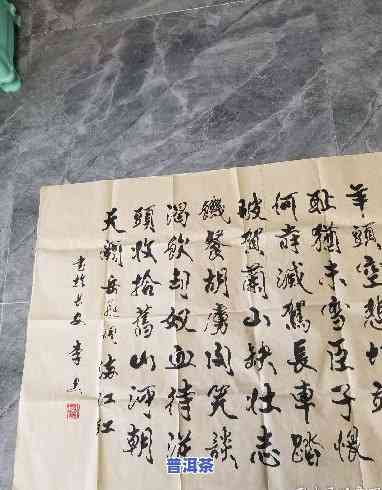 年頭空悲切
恥猶未雪臣子恨
何時滅駕長車踏
破賀蘭山缺壯志
饑餐胡虜肉笑談
渴飲匈奴血待從
頭收拾舊山河朝
天闕岳飛詞滿江紅
書於長安 李
普洱茶